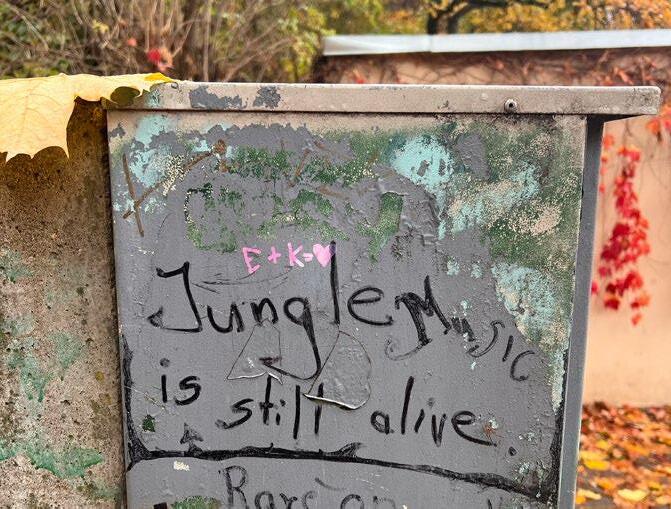 E + K = ♥
Jungle Music
is still alive.